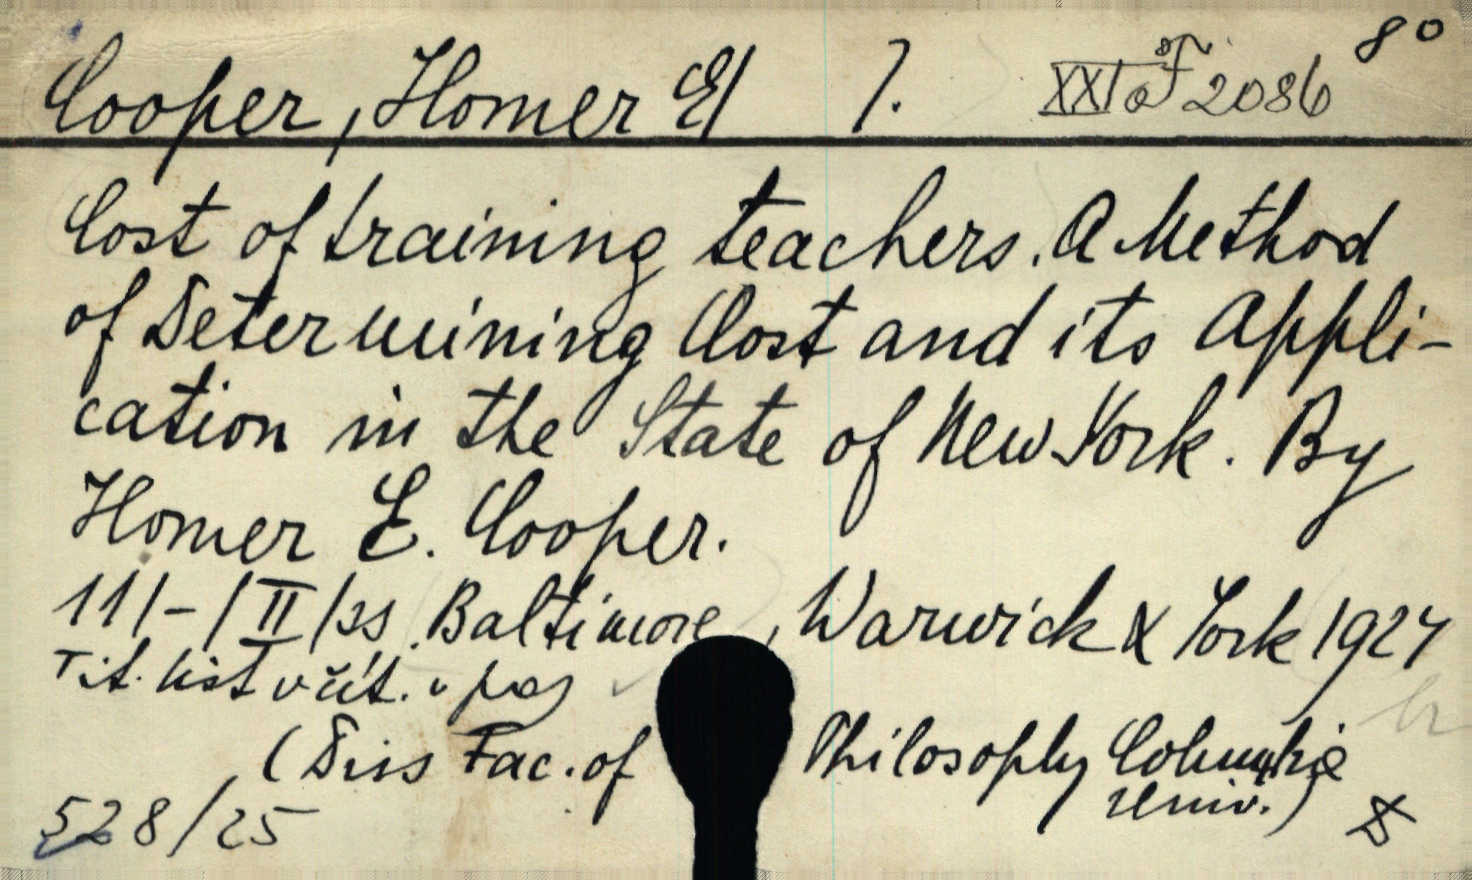 Cooper, Homer E/ 7. XXIa F 2086 8°
Cost of training teachers. A Method
of Determining Cost and its Appli-
cation in the State of New York. By
Homer E. Cooper.
111/-/II/ss. Baltimore, Warwick & York 1927
Tit. list včít. v pag
(Diss Fac. of Philosophy Columbia
Univ.)
528/25